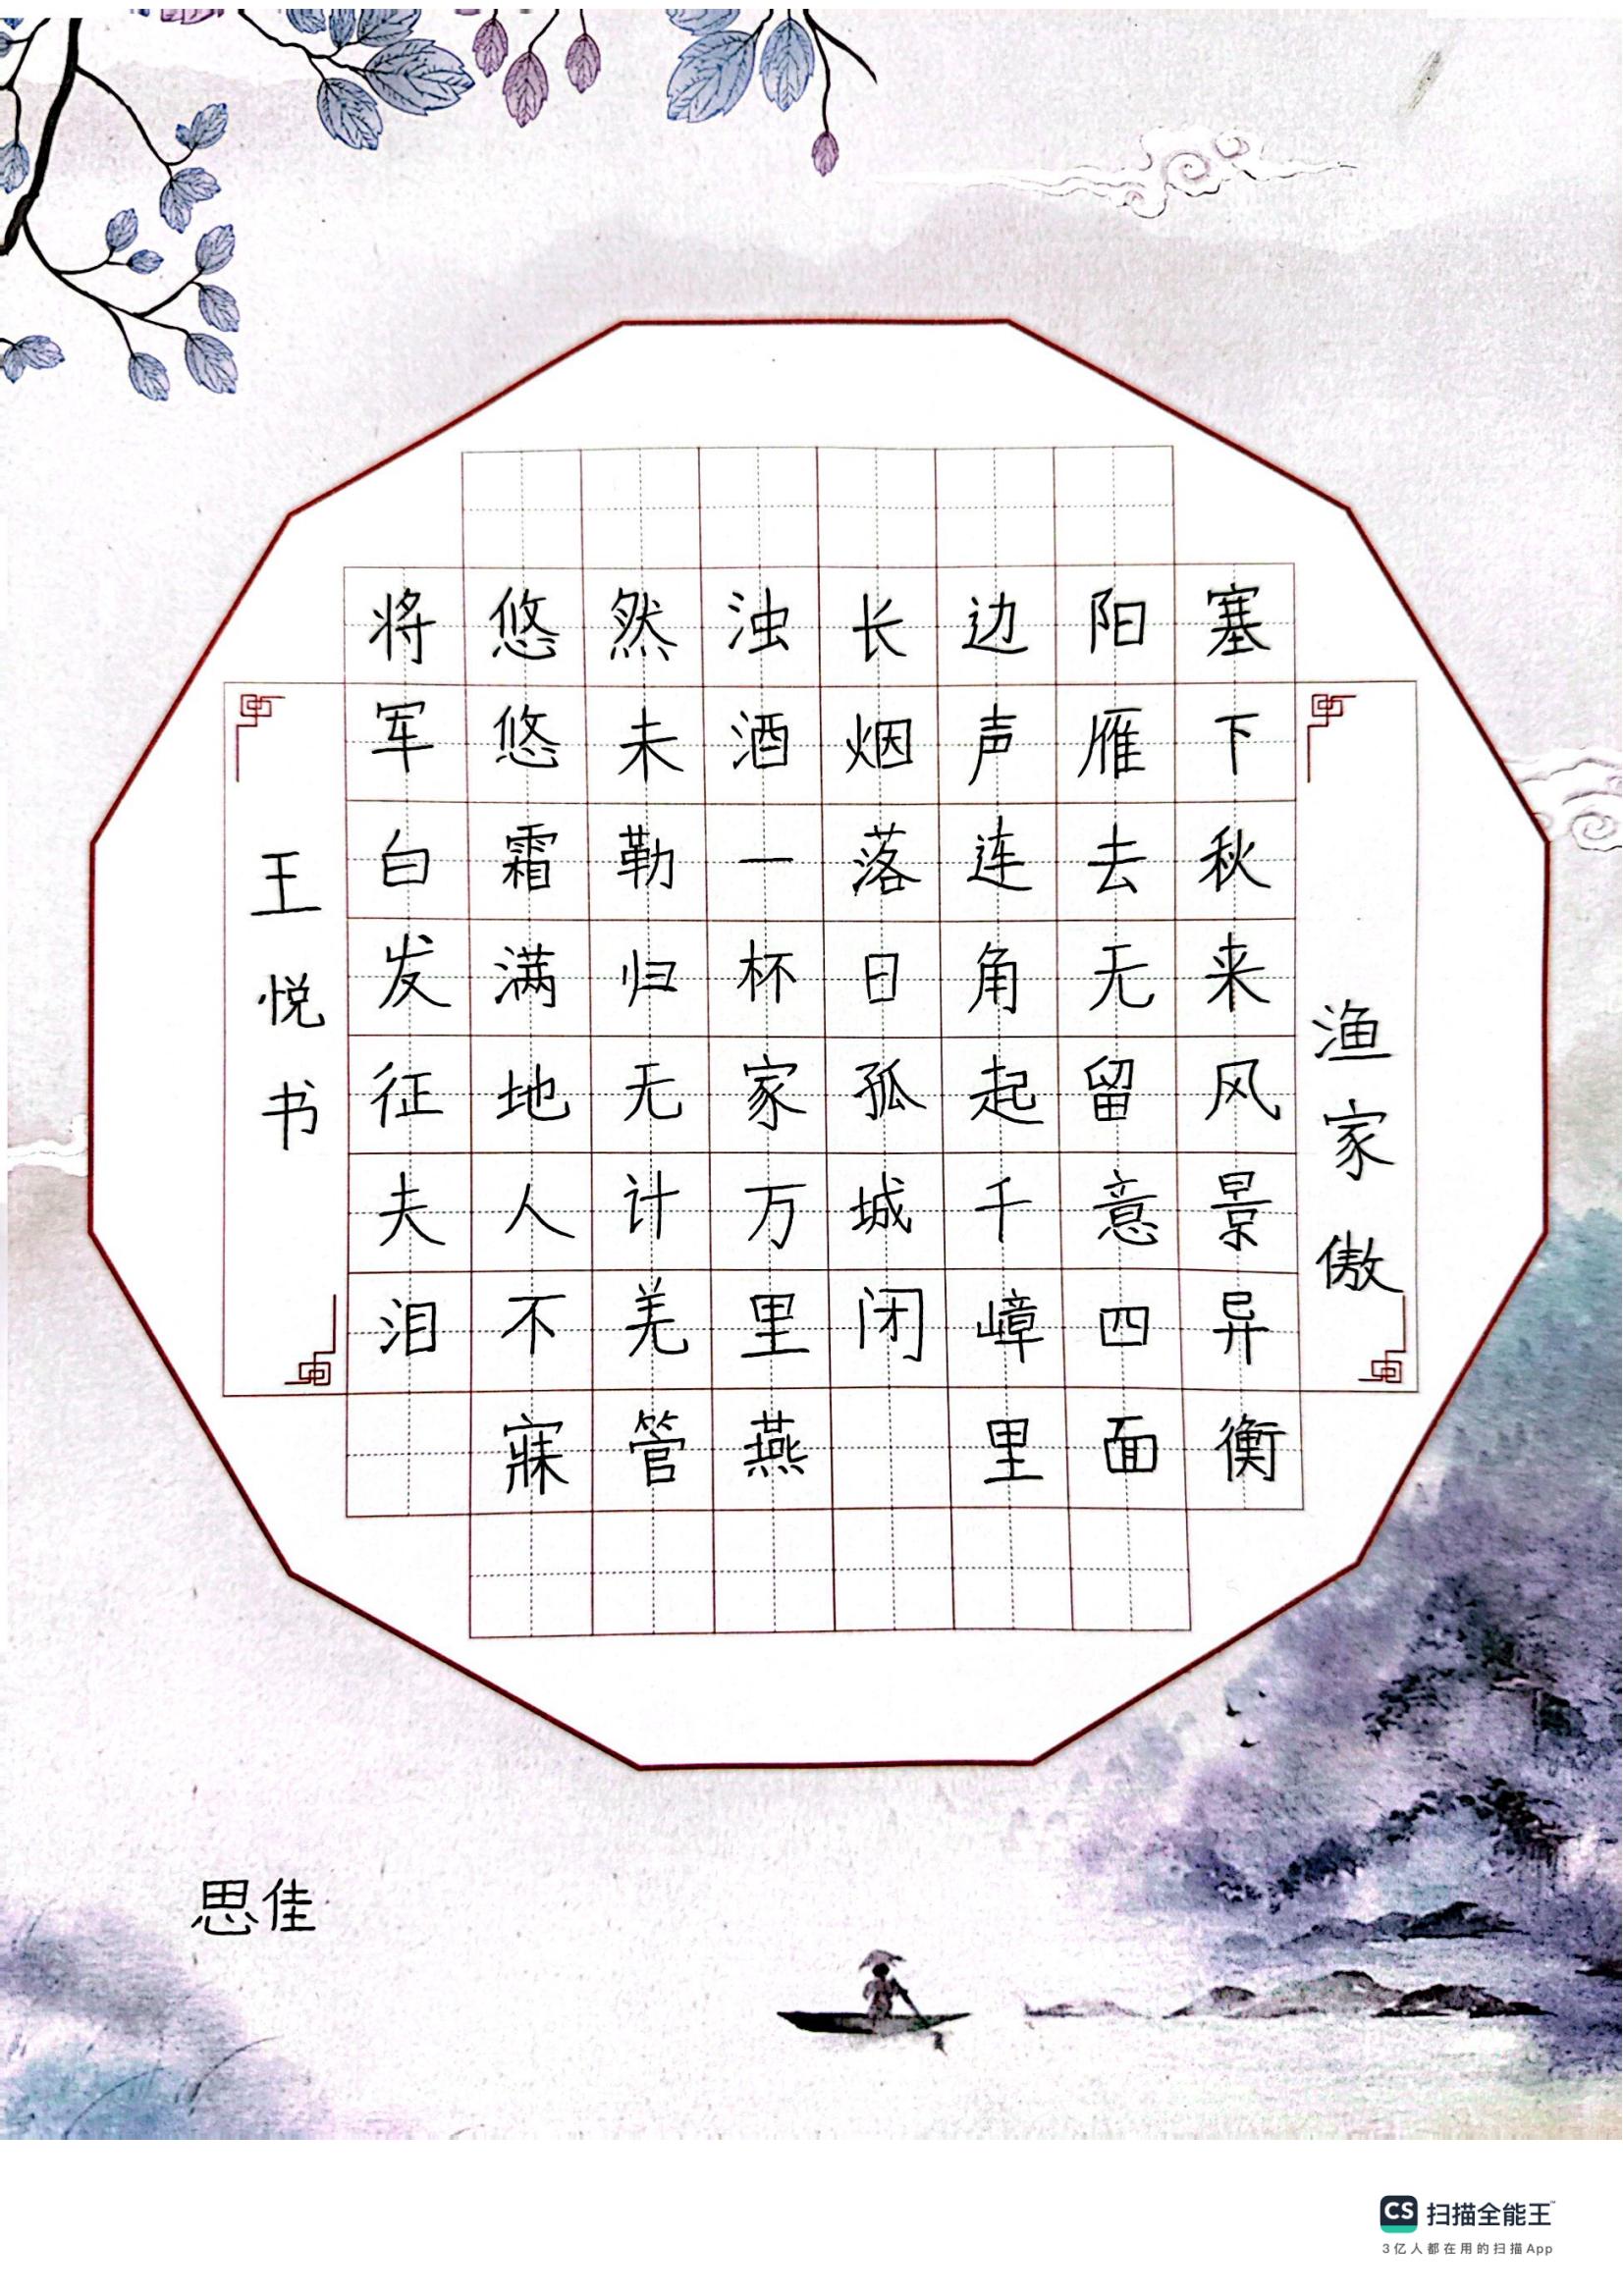 渔家傲
塞下秋来风景异衡
阳雁去无留意四面
边声连角起千嶂里
长烟落日孤城闭
浊酒一杯家万里燕
然未勒归无计羌管
悠悠霜满地人不寐
将军白发征夫泪
王悦书
思佳
CS 扫描全能王™
3亿人都在用的扫描App